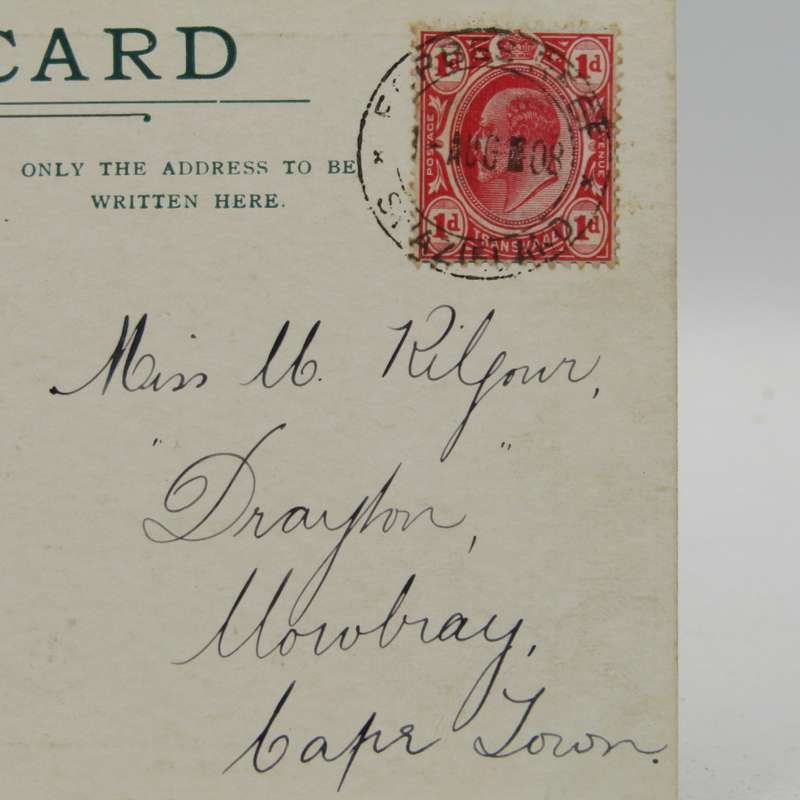 CARD
ONLY THE ADDRESS TO BE
WRITTEN HERE.
1d 1d
POSTAGE
REVENUE
1d TRANSVAAL 1d
AUG 08
Miss M. Kilgour,
"Drayton",
Mowbray,
Cape Town.